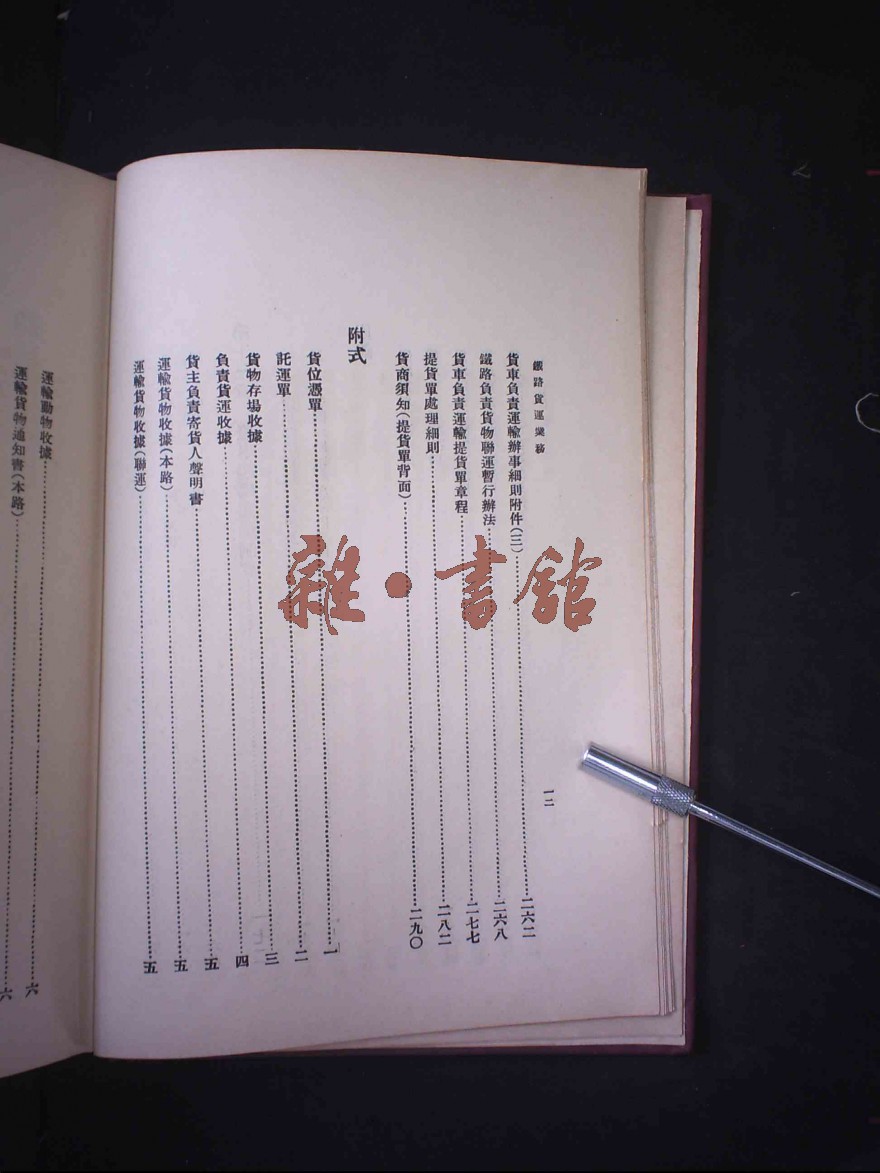 鐵路貨運業務
一二
貨車負責運輸辦事細則附件(三)……二六二
鐵路負責貨物聯運暫行辦法……二六八
貨車負責運輸提貨單章程……二七七
提貨單處理細則……二八二
貨商須知(提貨單背面)……二九〇
附式
貨位憑單……一
託運單……二
貨物存場收據……三
負責貨運收據……四
貨主負責寄貨人聲明書……五
運輸貨物收據(本路)……五
運輸貨物收據(聯運)……五
運輸動物收據……六
運輸貨物通知書(本路)……六
雜·書館